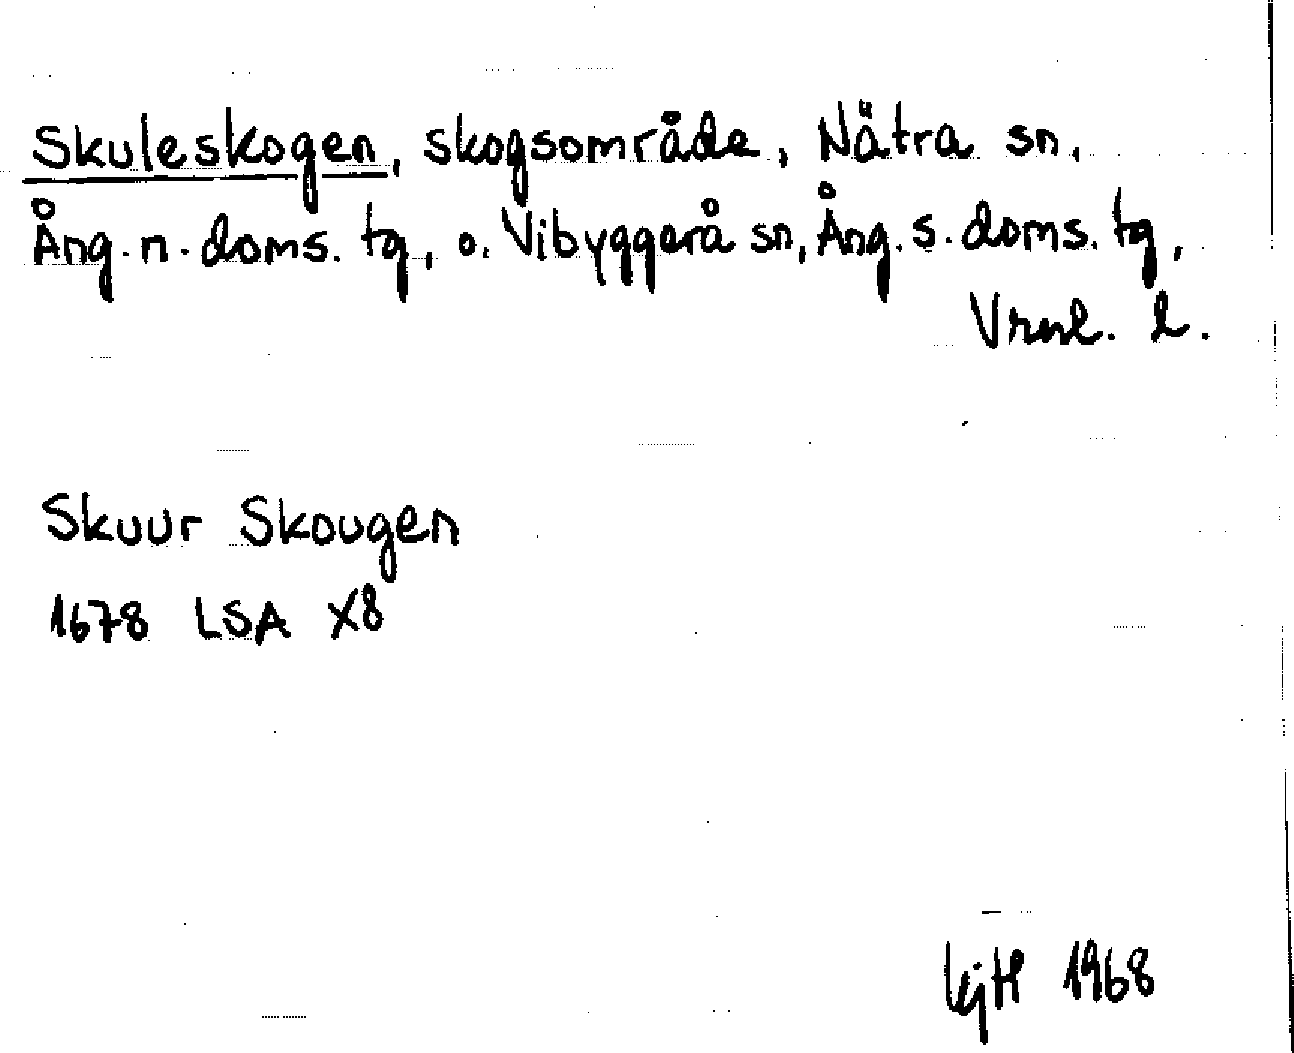 Skuleskogen, skogsområde, Nätra sn,
Ång. n. doms. tg, o. Vibyggerå sn, Ång. s. doms. tg,
Vrnl. l.
Skuur Skougen
1678 LSA X8
KjH 1968